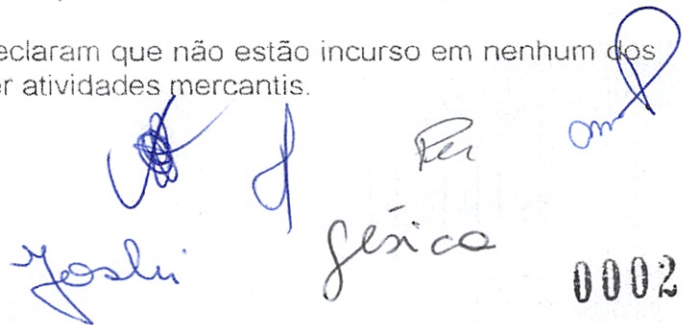 eclaram que não estão incurso em nenhum dos
er atividades mercantis.
Yoshi
Gésica
0002